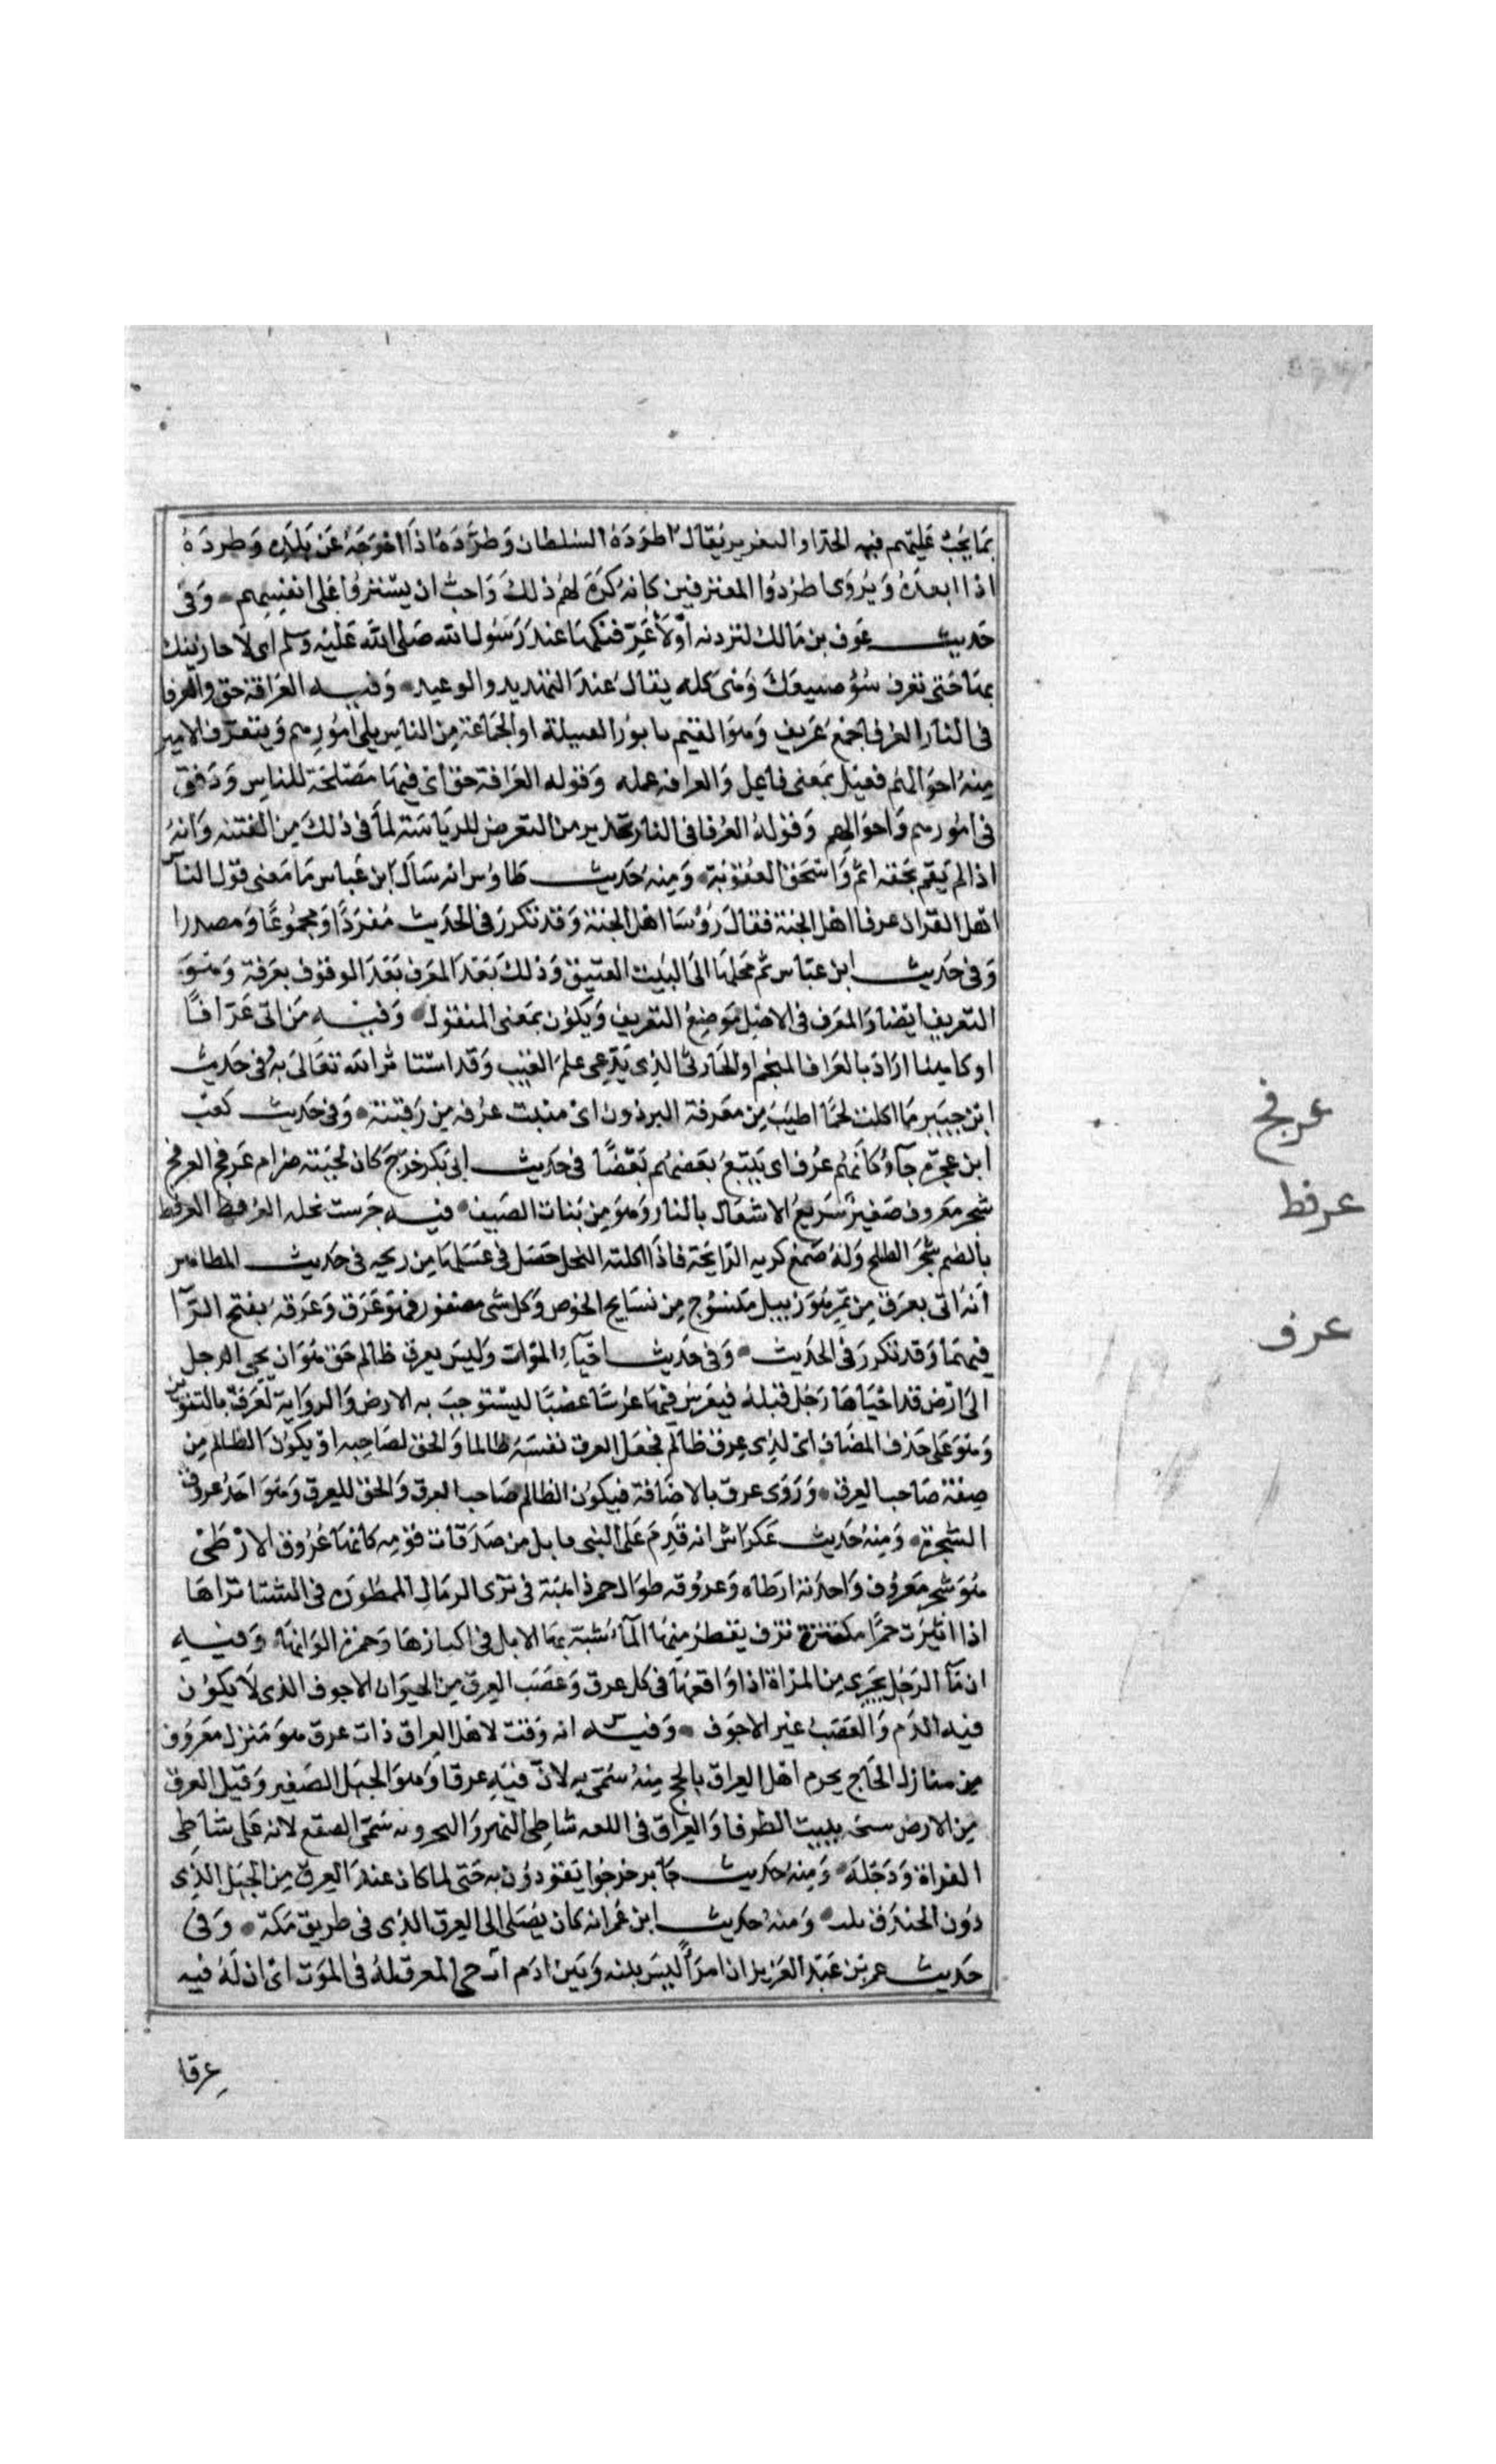 بما يجب عليهم فيه الحد او التعزير يقال اطرده السلطان وطرده اذا اخرجه عن بلده وطرده
اذا ابعده ويروى اطردوا المعترفين كانه كره لهم ذلك واحب ان يستتروا على انفسهم وفى
حديث عوف بن مالك لتردنه او لأعرفنكها عند رسول الله صلى الله عليه وسلم اى لاجازينك
بها حتى تعرف سوء صنيعك وهى كلمه يقال عند التهديد والوعيد وفيه العرافة حق والعرفا
فى النار العرفا جمع عريف وهو القيم بامور القبيلة او الجماعة من الناس يلى امورهم ويتعرف الامير
منه احوالهم فعيل بمعنى فاعل والعرافه عمله وقوله العرافة حق اى فيها مصلحة للناس ورفق
فى امورهم واحوالهم وقوله العرفا فى النار تحذير من التعرض للرياسة لما فى ذلك من الفتنه وانه
اذا لم يقم بحقه اثم واستحق العقوبة ومنه حديث طاوس انه سأل ابن عباس ما معنى قول الناس
اهل القران عرفا اهل الجنة فقال رؤسا اهل الجنة وقد تكرر فى الحديث مفردا ومجموعا ومصدرا
وفى حديث ابن عباس ثم محلها الى البيت العتيق وذلك بعد المعرف بعد الوقوف بعرفة وهو
التعريف ايضا والمعرف فى الاصل موضع التعريف ويكون بمعنى المفعول وفيه من اتى عرافا
او كاهنا اراد بالعراف المنجم او الحازى الذى يدعى علم الغيب وقد استاثر الله تعالى به فى حديث
ابن جبير ما اكلت لحما اطيب من معرفة البرذون اى منبت عرفه من رقبته وفى حديث كعب
ابن عجرة جاؤ كانهم عرف اى يتبع بعضهم بعضا فى حديث ابى بكر خرج كان لحيته ضرام عرفج العرفج
شجر معروف صغير سريع الاشتعال بالنار وهو من نبات الصيف فيه جرست نحله العرفط العرفط
بالضم شجر الطلح وله صمغ كريه الرايحة فاذا اكلته النحل حصل فى عسلها من ريحه فى حديث المظاهر
انه اتى بعرق من تمر هو زبيل منسوج من نسايج الخوص وكل شى مضفور فهو عرق وعرقه بفتح الرا
فيهما وقد تكرر فى الحديث وفى حديث احيآء الموات وليس لعرق ظالم حق هو ان يجى الرجل
الى ارض قد احياها رجل قبله فيغرس فيها غرسا غصبا ليستوجب به الارض والرواية لعرق بالتنوين
وهو على حذف المضاف اى لذى عرق ظالم فجعل العرق نفسه ظالما والحق لصاحبه او يكون الظالم من
صفة صاحب العرق وروى عرق بالاضافة فيكون الظالم صاحب العرق والحق للعرق وهو احد عروق
الشجرة ومنه حديث عكراش انه قدم على النبى بابل من صدقات قومه كانها عروق الارطى
هو شجر معروف واحدته ارطاه وعروقه طوال حمر ذاهبة فى ثرى الرمال الممطورة فى الشتا تراها
اذا اثيرت حمرا مكتنزة ترف يقطر منها المآء شبه بها الابل فى اكتنازها وحمرة الوانها وفيه
ان مآ الرجل يجرى من المراة اذا واقعها فى كل عرق وعصب العرق من الحيوان الاجوف الذى لا يكون
فيه الدم والعصب غير الاجوف وفيه انه وقت لاهل العراق ذات عرق هو منزل معروف
من منازل الحاج يحرم اهل العراق بالحج منه سمى به لان فيه عرقا وهو الجبل الصغير وقيل العرق
من الارض سبخة ينبت الطرفا والعراق فى اللغه شاطى النهر والبحر وبه سمى الصقع لانه على شاطى
الفراة ودجلة ومنه حديث جابر خرجوا يقودون به حتى لما كان عند العرق من الجبل الذى
دون الخندق ومنه حديث ابن عمر انه كان يصلى الى العرق الذى فى طريق مكة وفى
حديث عمر بن عبد العزيز ان امرأ ليس بينه وبين ادم اب حى لمعرق له فى الموت اى ان له فيه
عرقا
عرفج
عرفط
عرف